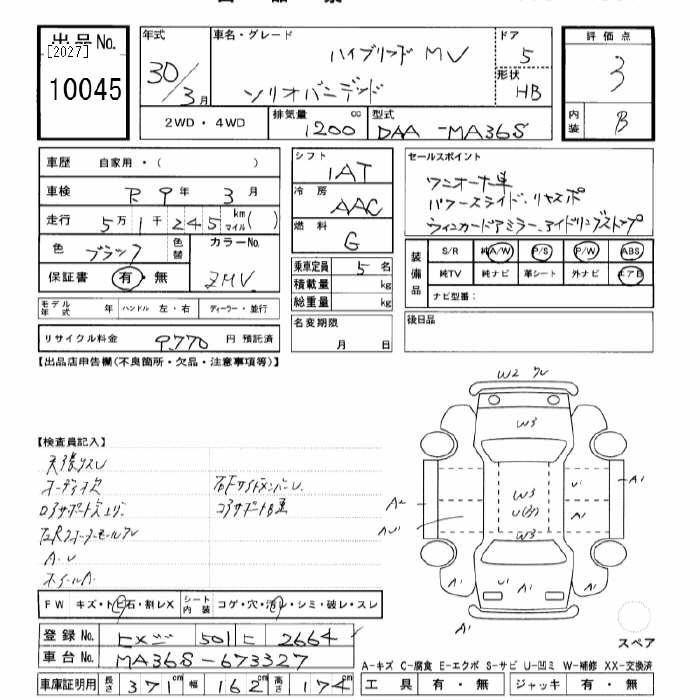 出品No. [2027] 10045
年式 30/3月
車名・グレード ハイブリッド MV
ソリオバンディッド
ドア 5
形状 HB
評価点 3
内装 B
2WD・4WD
排気量 1200 cc
型式 DAA-MA36S
車歴 自家用・( )
車検 R 9年 3月
走行 5万1千245 km マイル( )
色 ブラック 色替
カラーNo. ZMV
保証書 有・無
モデル年式 年 ハンドル 左・右 ディーラー・並行
リサイクル料金 9770 円 預託済
シフト IAT
冷房 AAC
燃料 G
乗車定員 5名
積載量 kg
総重量 kg
名変期限 月 日
セールスポイント
ワンオーナー車
パワースライド、リヤスポ
ウィンカードアミラー、アイドリングストップ
装備品 S/R 純A/W P/S P/W ABS
純TV 純ナビ 革シート 外ナビ エアB
ナビ型番:
後日品
【出品店申告欄(不良箇所・欠品・注意事項等)】
W2
W3
W3
U
A1
A2
A1
W3
A1
U
A1
A1
A1
【検査員記入】
オーディオ欠
コアサポート
A・U
ホイールA
FW キズ・トビ石・割レX シート内装 コゲ・穴・汚レ・シミ・破レ・スレ
登録No. 501 ヒ 2664
車台No. MA36S-673327
車庫証明用 長さ 371cm 幅 162cm 高さ 174cm
スペア
A-キズ C-腐食 E-エクボ S-サビ U-凹ミ W-補修 XX-交換済
工具 有・無 ジャッキ 有・無